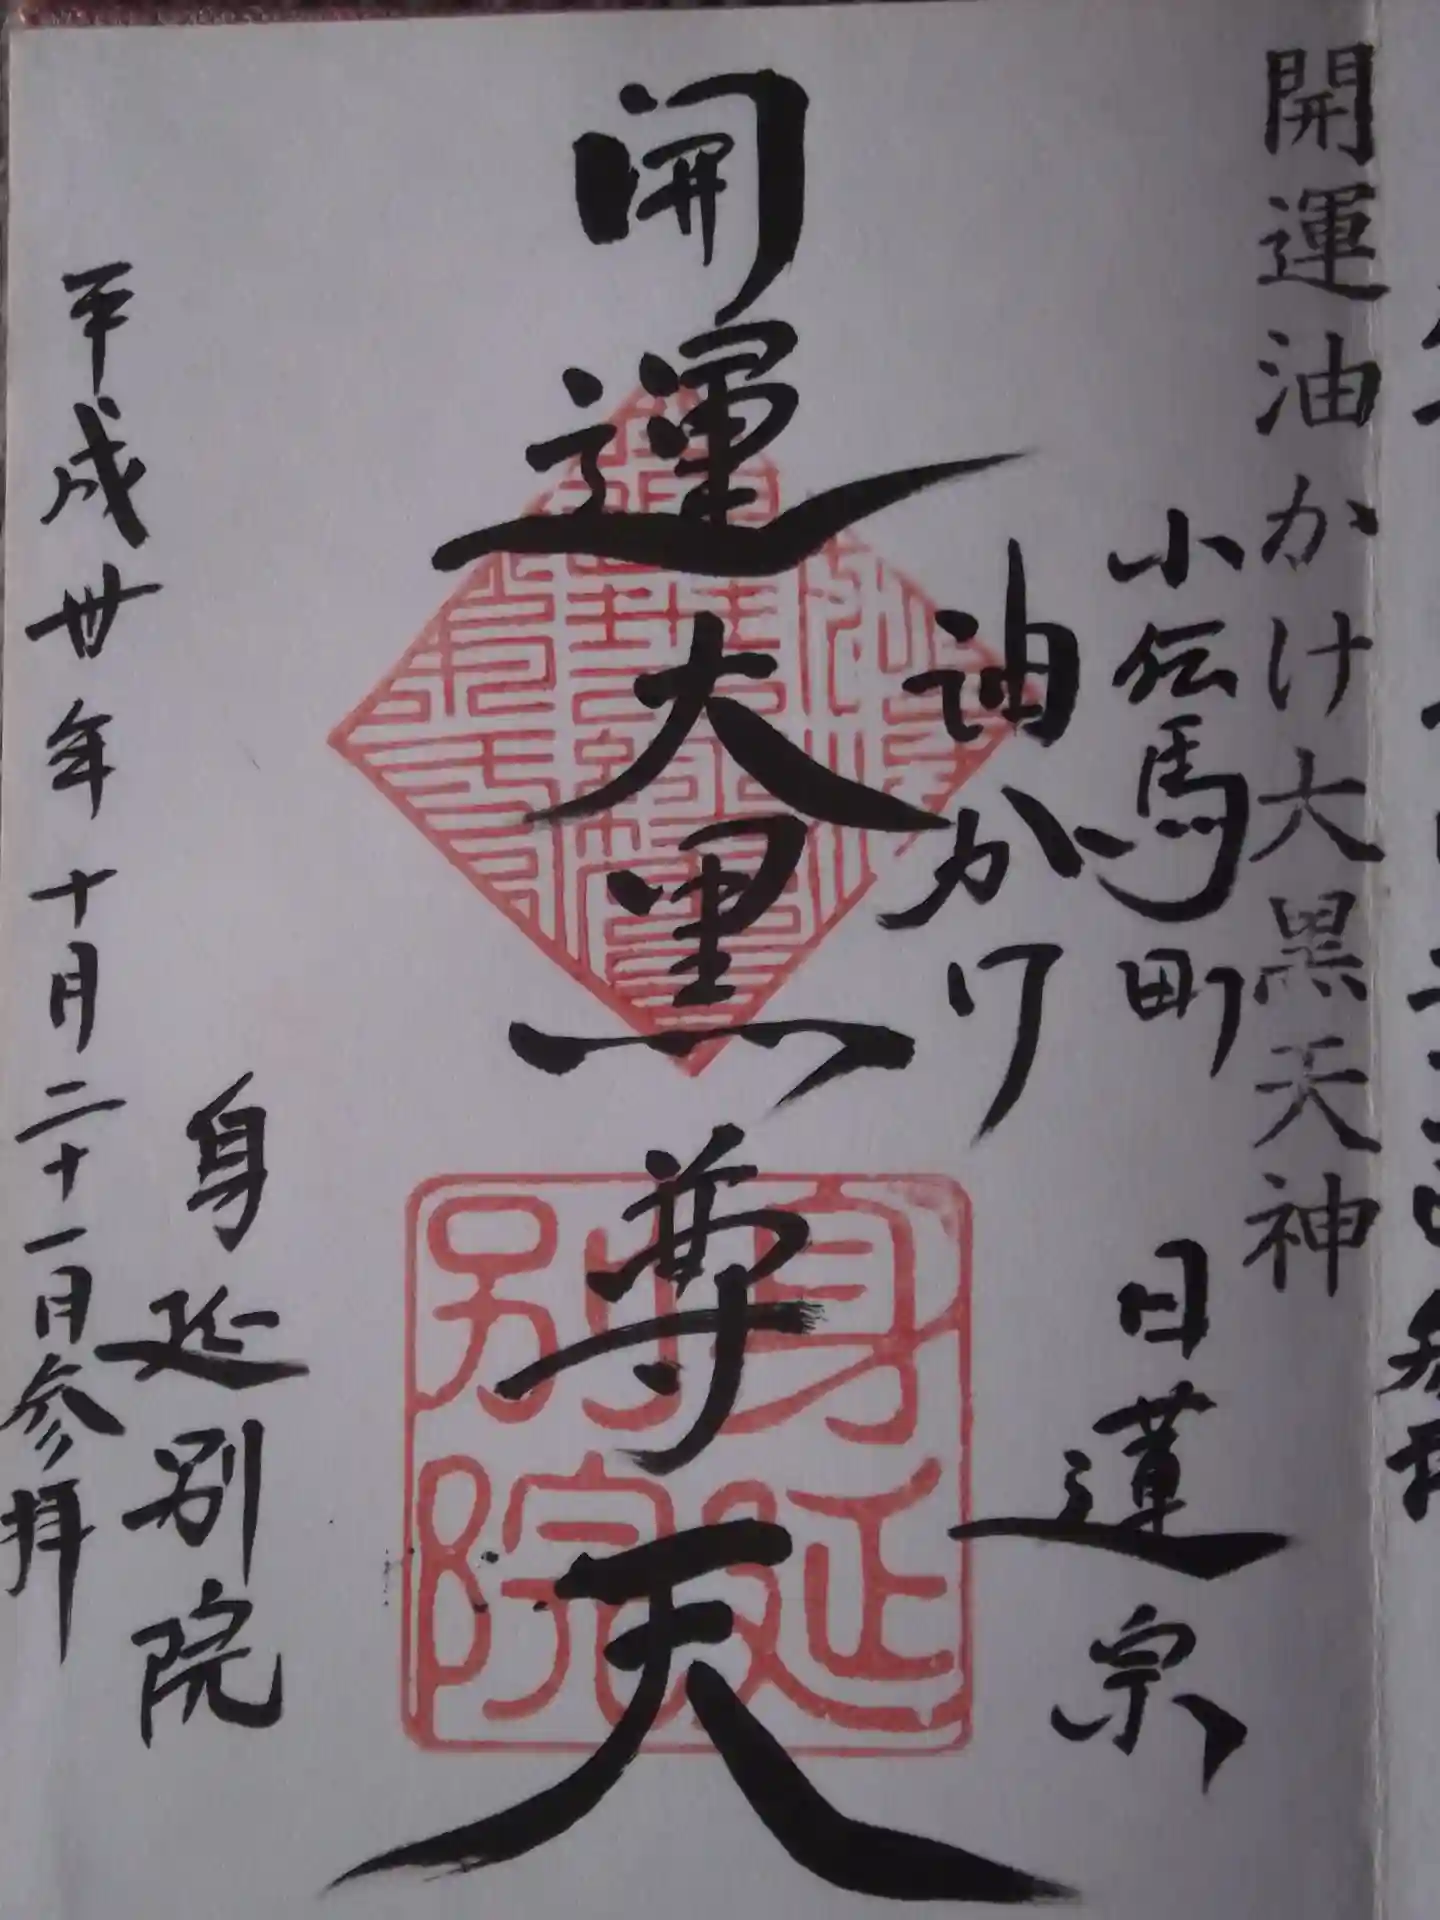 開運油かけ大黒天神
小伝馬町 日蓮宗
油かけ
開運大黒尊天
身延別院
身延別院
平成卅年十月二十一日参拝